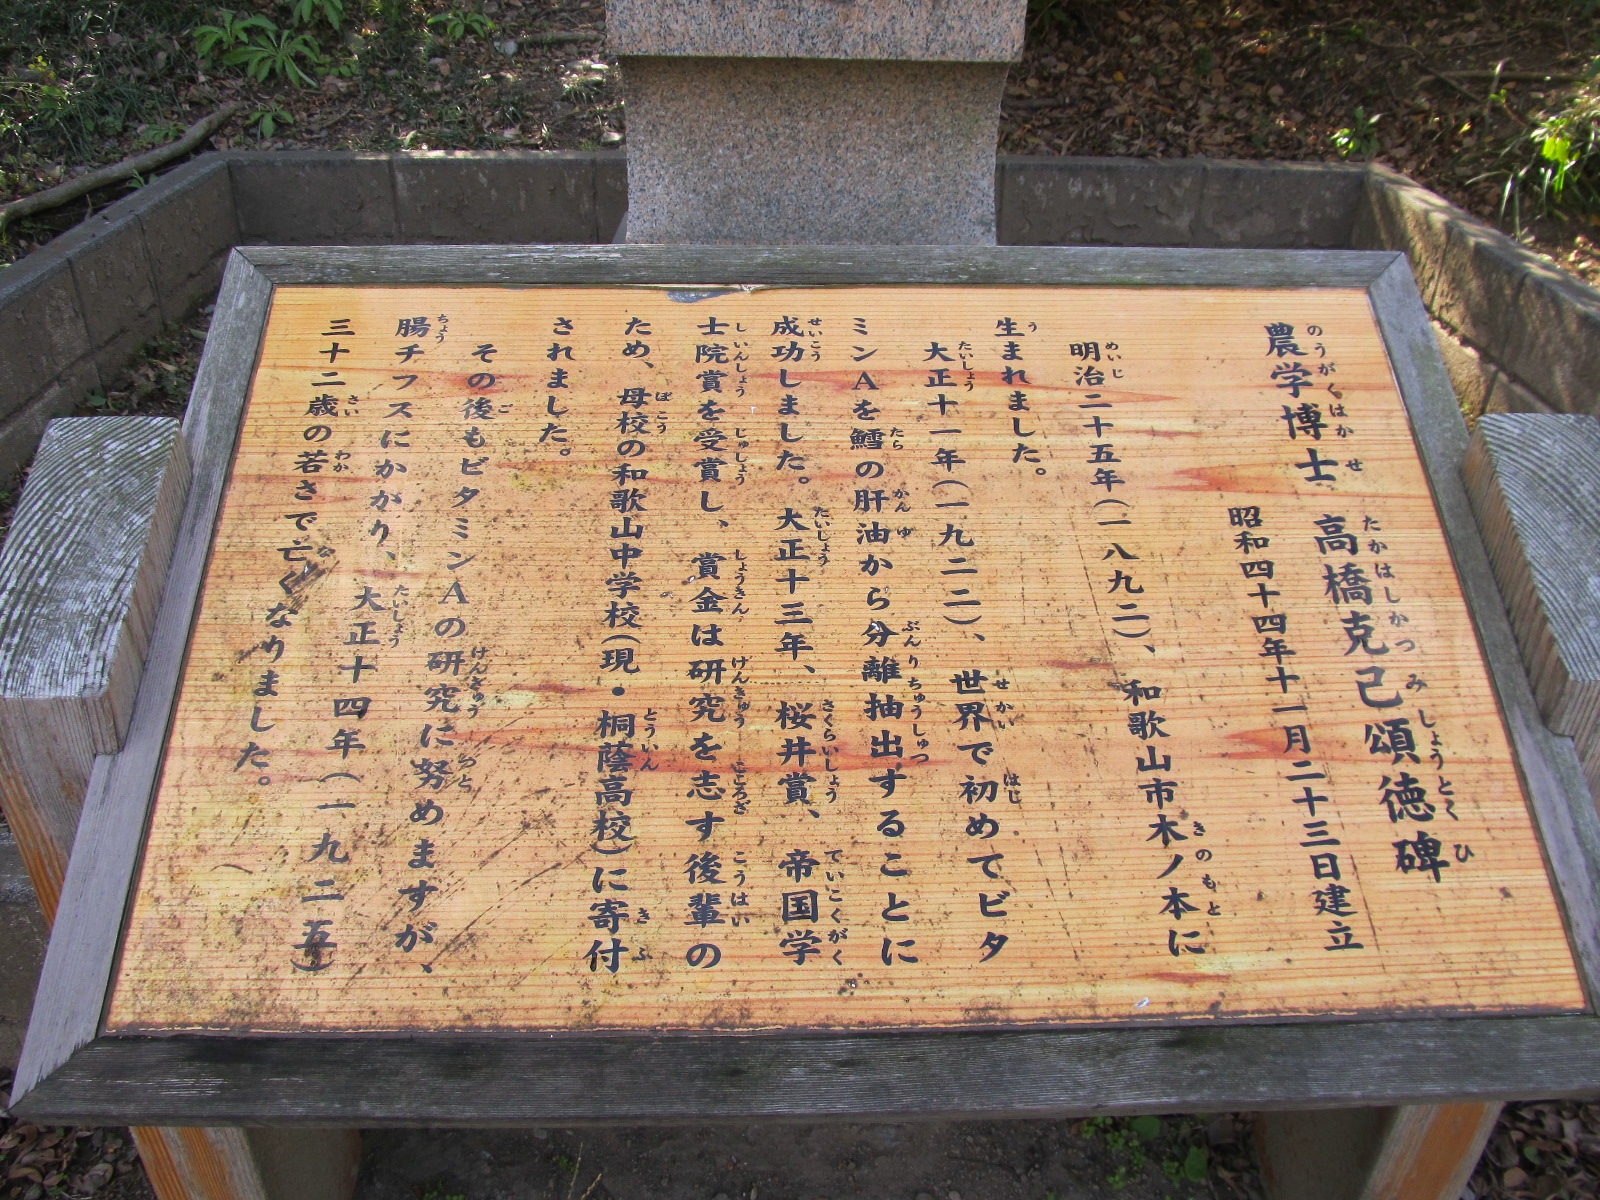 農学博士 高橋克己頌徳碑
昭和四十四年十一月二十三日建立
明治二十五年(一八九二)、和歌山市木ノ本に
生まれました。
大正十一年(一九二二)、世界で初めてビタ
ミンAを鱈の肝油から分離抽出することに
成功しました。大正十三年、桜井賞、帝国学
士院賞を受賞し、賞金は研究を志す後輩の
ため、母校の和歌山中学校(現・桐蔭高校)に寄付
されました。
その後もビタミンAの研究に努めますが、
腸チフスにかかり、大正十四年(一九二五)
三十二歳の若さで亡くなりました。